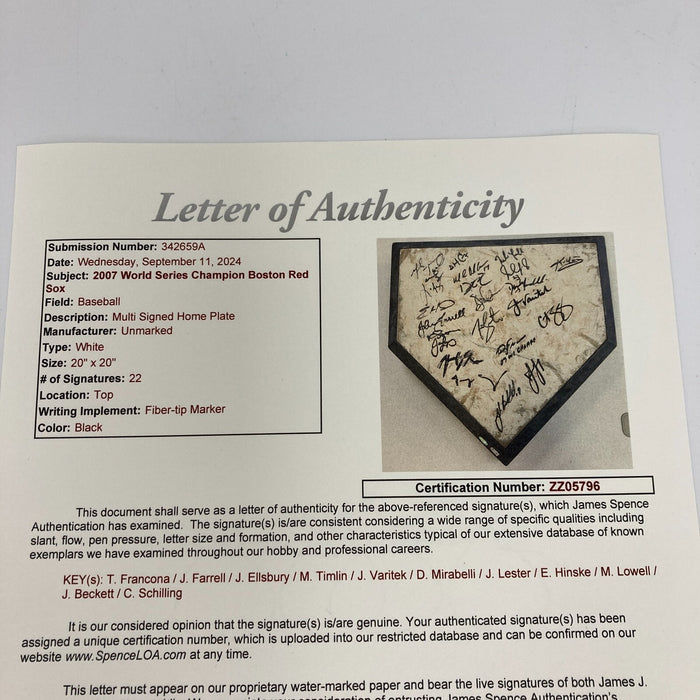 Letter of Authenticity
Submission Number: 342659A
Date: Wednesday, September 11, 2024
Subject: 2007 World Series Champion Boston Red
Sox
Field: Baseball
Description: Multi Signed Home Plate
Manufacturer: Unmarked
Type: White
Size: 20" x 20"
# of Signatures: 22
Location: Top
Writing Implement: Fiber-tip Marker
Color: Black
Certification Number: ZZ05796
This document shall serve as a letter of authenticity for the above-referenced signature(s), which James Spence
Authentication has examined. The signature(s) is/are consistent considering a wide range of specific qualities including
slant, flow, pen pressure, letter size and formation, and other characteristics typical of our extensive database of known
exemplars we have examined throughout our hobby and professional careers.
KEY(s): T. Francona / J. Farrell / J. Ellsbury / M. Timlin / J. Varitek / D. Mirabelli / J. Lester / E. Hinske / M. Lowell /
J. Beckett / C. Schilling
It is our considered opinion that the signature(s) is/are genuine. Your authenticated signature(s) has been
assigned a unique certification number, which is uploaded into our restricted database and can be confirmed on our
website www.SpenceLOA.com at any time.
This letter must appear on our proprietary water-marked paper and bear the live signatures of both James J.